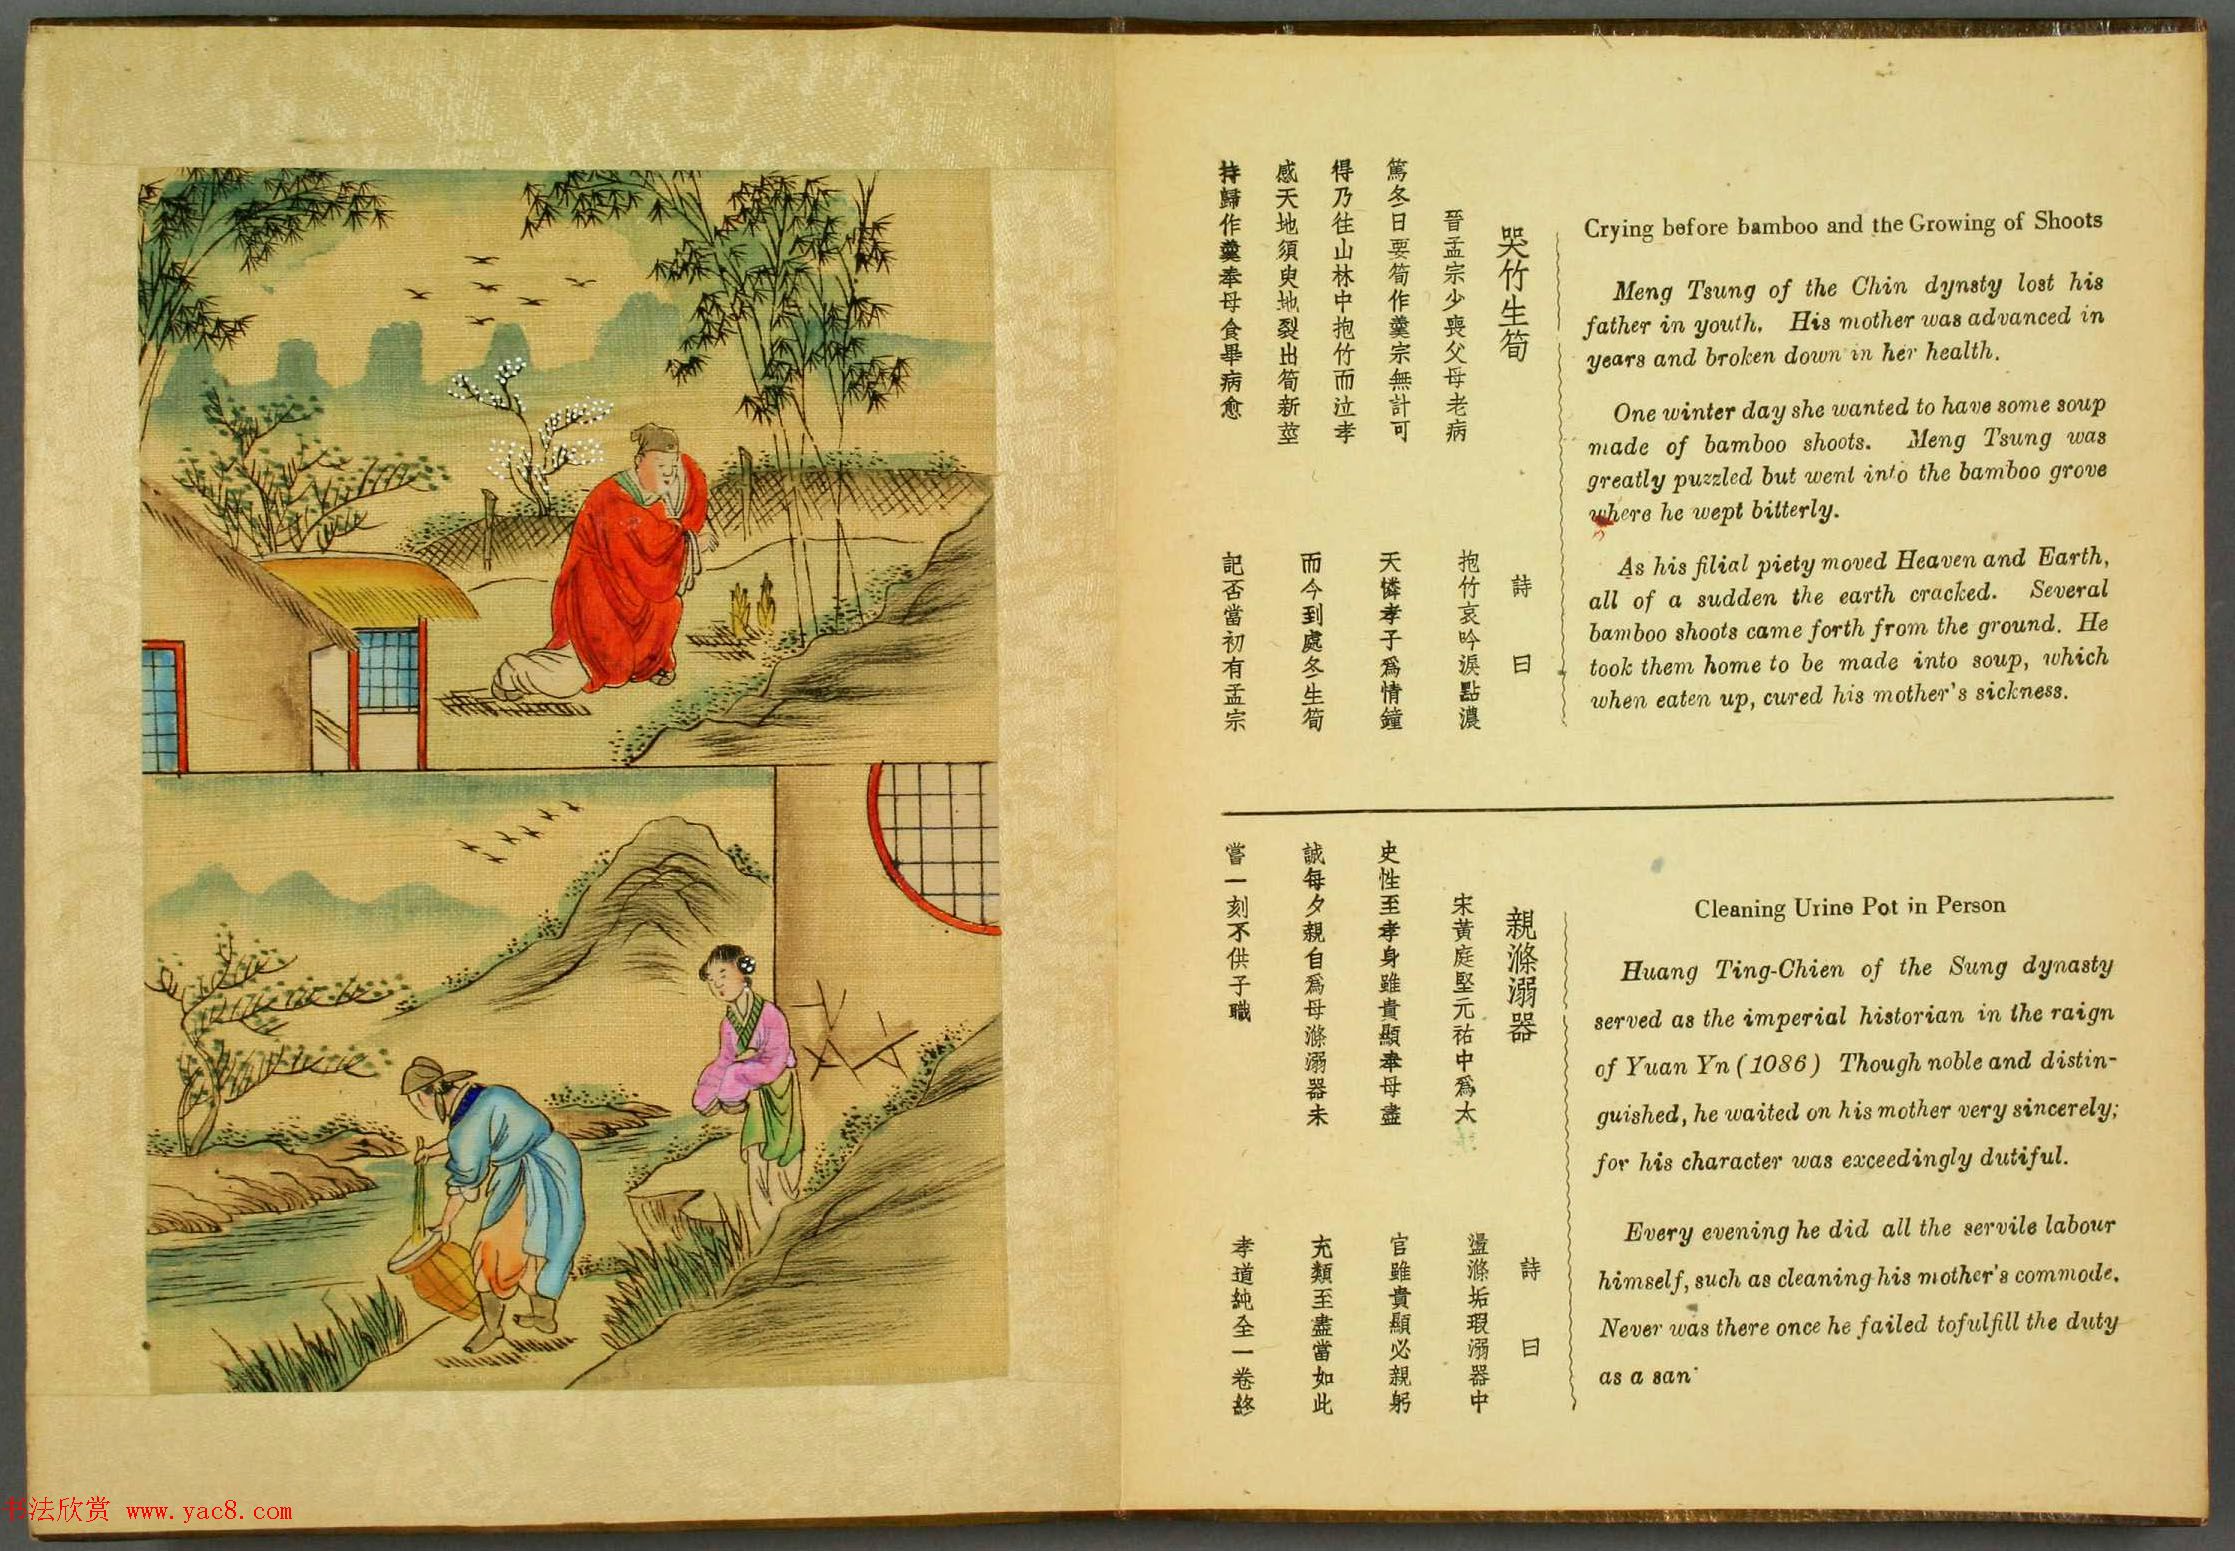 Crying before bamboo and the Growing of Shoots
Meng Tsung of the Chin dynsty lost his
father in youth. His mother was advanced in
years and broken down in her health.
One winter day she wanted to have some soup
made of bamboo shoots. Meng Tsung was
greatly puzzled but went into the bamboo grove
where he wept bitterly.
As his filial piety moved Heaven and Earth,
all of a sudden the earth cracked. Several
bamboo shoots came forth from the ground. He
took them home to be made into soup, which
when eaten up, cured his mother's sickness.
哭竹生筍
晉孟宗少喪父母老病
篤冬日要筍作羹宗無計可
得乃往山林中抱竹而泣孝
感天地須臾地裂出筍新莖
持歸作羹奉母食畢病愈
詩曰
抱竹哀吟淚點濃
天憐孝子爲情鐘
而今到處冬生筍
記否當初有孟宗
Cleaning Urine Pot in Person
Huang Ting-Chien of the Sung dynasty
served as the imperial historian in the raign
of Yuan Yn (1086) Though noble and distin-
guished, he waited on his mother very sincerely;
for his character was exceedingly dutiful.
Every evening he did all the servile labour
himself, such as cleaning his mother's commode.
Never was there once he failed tofulfill the duty
as a san
親滌溺器
宋黃庭堅元祐中爲太
史性至孝身雖貴顯奉母盡
誠每夕親自爲母滌溺器未
嘗一刻不供子職
詩曰
盪滌垢瑕溺器中
官雖貴顯必親躬
充類至盡當如此
孝道純全一卷終
书法欣赏 www.yac8.com